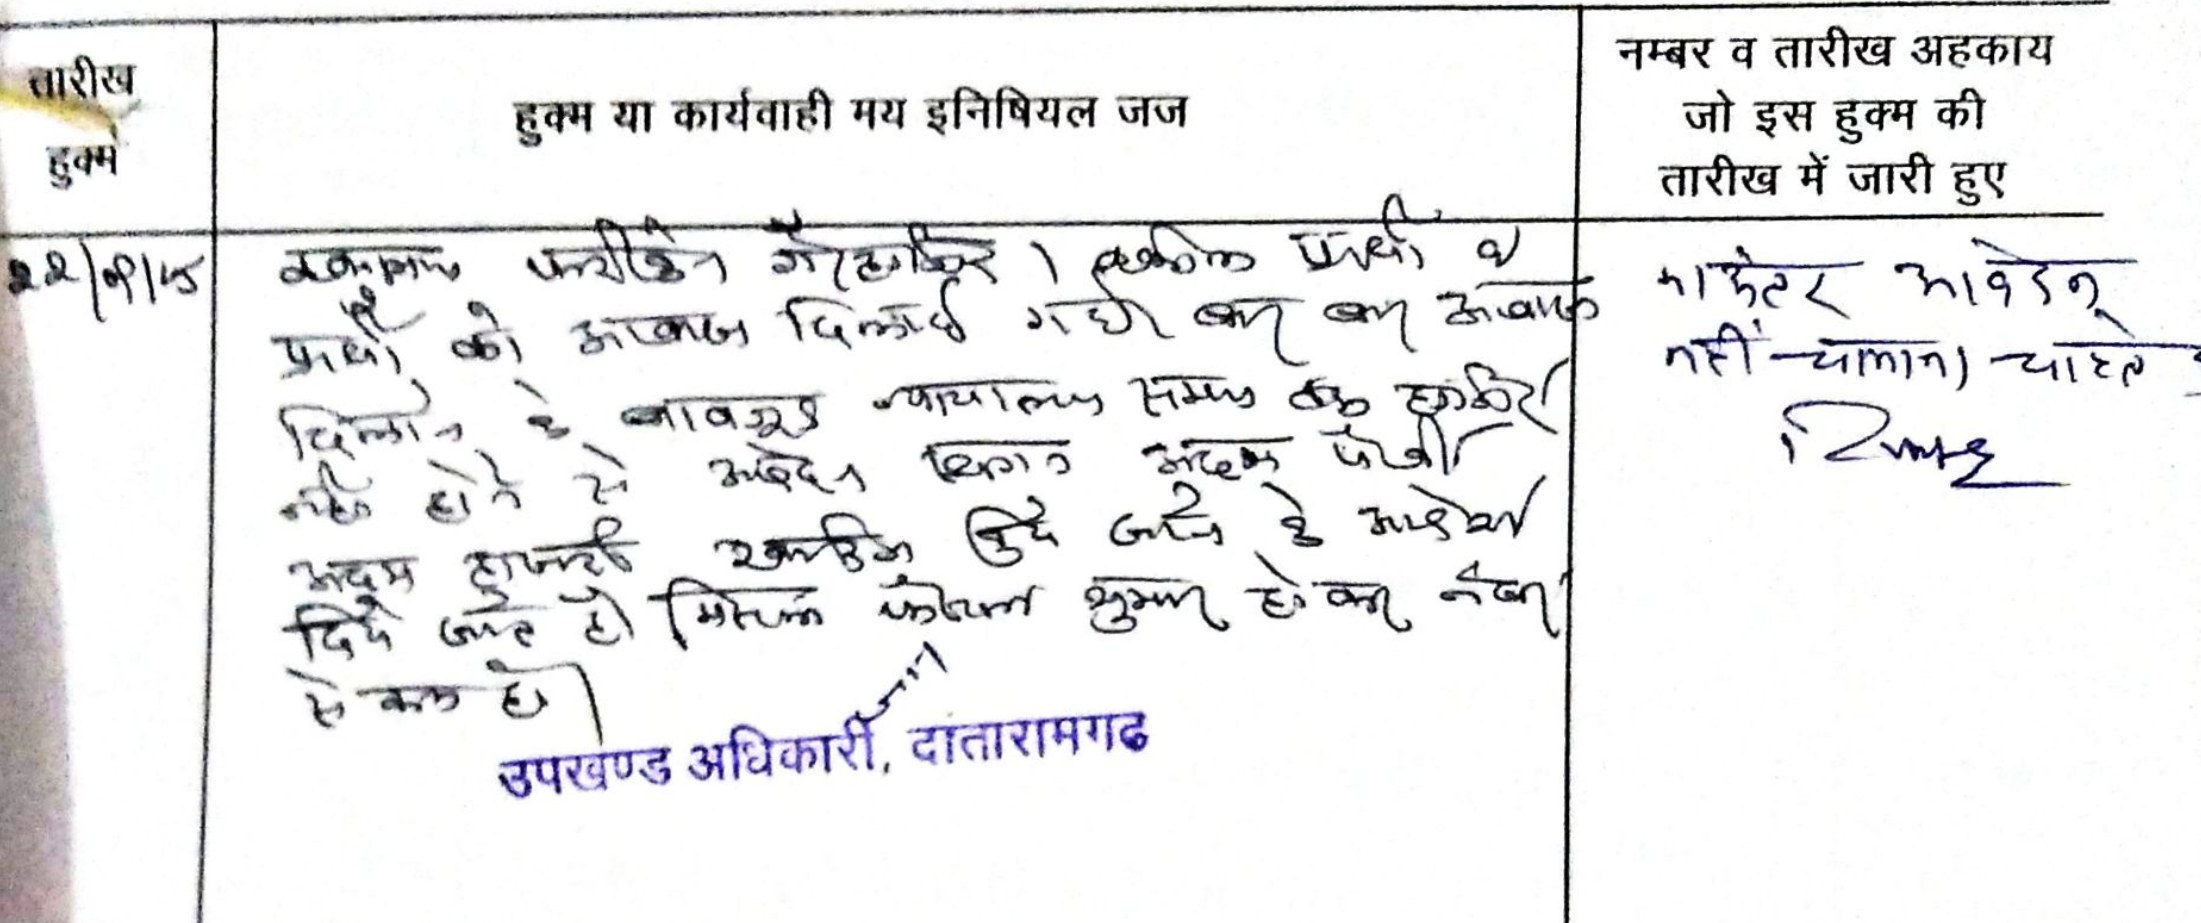 तारीख
हुक्म
हुक्म या कार्यवाही मय इनिषियल जज
नम्बर व तारीख अहकाय
जो इस हुक्म की
तारीख में जारी हुए
वकलाय फरीकेन गैरहाजिर । वकील प्रार्थी व
प्रार्थी को आवाज दिलाई गयी बार बार आवाज
दिलाने के बावजूद न्यायालय समय तक हाजिर
नहीं होने से आवेदन अदम पैरवी
अदम हाजरी खारिज किये जाने के आदेश
दिये जाते है। मिसल फैसल शुमार होकर नंबर
से कम हो।
उपखण्ड अधिकारी, दांतारामगढ
आवेदन
नहीं चलाना चाहते